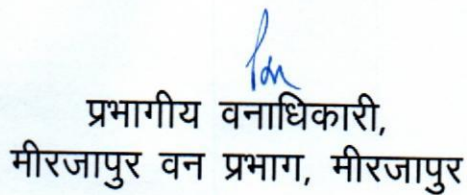 प्रभागीय वनाधिकारी,
मीरजापुर वन प्रभाग, मीरजापुर